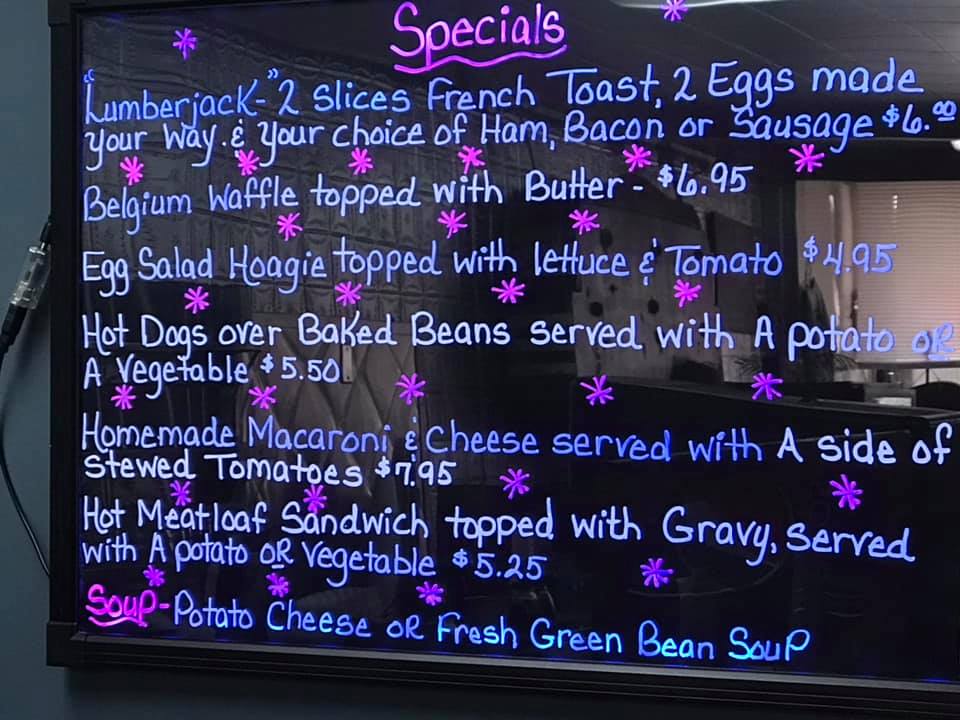 Specials
"Lumberjack"- 2 Slices French Toast, 2 Eggs made
your way. & your choice of Ham, Bacon or Sausage $6.00
Belgium Waffle topped with Butter - $6.95
Egg Salad Hoagie topped with lettuce & Tomato $4.95
Hot Dogs over Baked Beans served with A potato OR
A Vegetable $5.50
Homemade Macaroni & Cheese served with A side of
Stewed Tomatoes $7.95
Hot Meatloaf Sandwich topped with Gravy, served
with A potato OR Vegetable $5.25
Soup- Potato Cheese OR Fresh Green Bean Soup